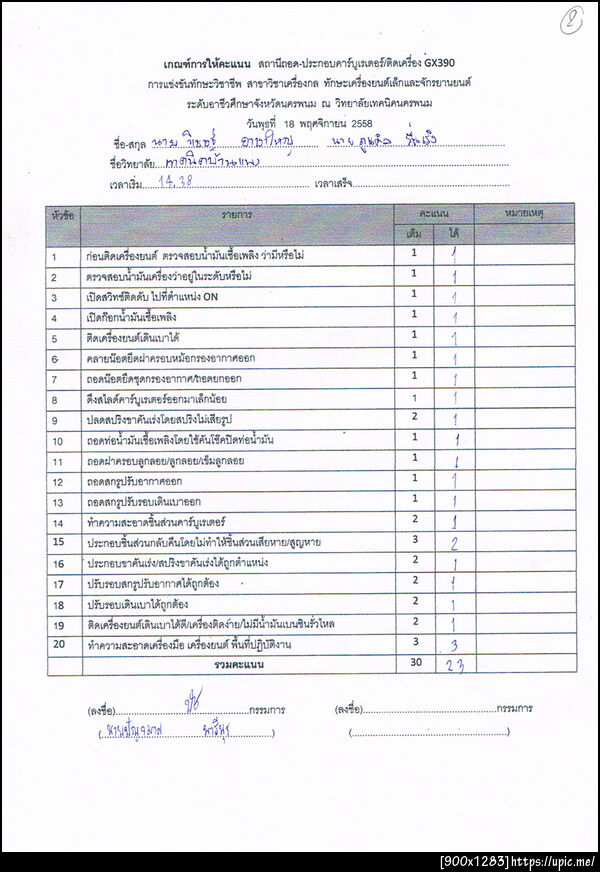 2
เกณฑ์การให้คะแนน สถานีถอด-ประกอบคาร์บูเรเตอร์/ติดเครื่อง GX390
การแข่งขันทักษะวิชาชีพ สาขาวิชาเครื่องกล ทักษะเครื่องยนต์เล็กและจักรยานยนต์
ระดับอาชีวศึกษาจังหวัดนครพนม ณ วิทยาลัยเทคนิคนครพนม
วันพุธที่ 18 พฤศจิกายน 2558
ชื่อ-สกุล นาย อาจใหญ่ นาย
ชื่อวิทยาลัย เทคนิคบ้านแพง
เวลาเริ่ม 14.38 เวลาเสร็จ
หัวข้อ รายการ คะแนน หมายเหตุ
เต็ม ได้
1 ก่อนติดเครื่องยนต์ ตรวจสอบน้ำมันเชื้อเพลิง ว่ามีหรือไม่ 1 1
2 ตรวจสอบน้ำมันเครื่องว่าอยู่ในระดับหรือไม่ 1 1
3 เปิดสวิทซ์ติดดับ ไปที่ตำแหน่ง ON 1 1
4 เปิดก๊อกน้ำมันเชื้อเพลิง 1 1
5 ติดเครื่องยนต์เดินเบาได้ 1 1
6 คลายน๊อตยึดฝาครอบหม้อกรองอากาศออก 1 1
7 ถอดน๊อตยึดชุดกรองอากาศ/ถอดยกออก 1 1
8 ดึงสไลด์คาร์บูเรเตอร์ออกมาเล็กน้อย 1 1
9 ปลดสปริงขาคันเร่งโดยสปริงไม่เสียรูป 2 1
10 ถอดท่อน้ำมันเชื้อเพลิงโดยใช้คันโช๊คปิดท่อน้ำมัน 1 1
11 ถอดฝาครอบลูกลอย/ลูกลอย/เข็มลูกลอย 1 1
12 ถอดสกรูปรับอากาศออก 1 1
13 ถอดสกรูปรับรอบเดินเบาออก 1 1
14 ทำความสะอาดชิ้นส่วนคาร์บูเรเตอร์ 2 1
15 ประกอบชิ้นส่วนกลับคืนโดยไม่ทำให้ชิ้นส่วนเสียหาย/สูญหาย 3 2
16 ประกอบขาคันเร่ง/สปริงขาคันเร่งได้ถูกตำแหน่ง 2 1
17 ปรับรอบสกรูปรับอากาศได้ถูกต้อง 2 1
18 ปรับรอบเดินเบาได้ถูกต้อง 2 1
19 ติดเครื่องยนต์เดินเบาได้ดี/เครื่องติดง่าย/ไม่มีน้ำมันเบนซินรั่วไหล 2 1
20 ทำความสะอาดเครื่องมือ เครื่องยนต์ พื้นที่ปฏิบัติงาน 3 3
รวมคะแนน 30 23
(ลงชื่อ) กรรมการ (ลงชื่อ) กรรมการ
( ) ( )
[900x1283]https://upic.me/